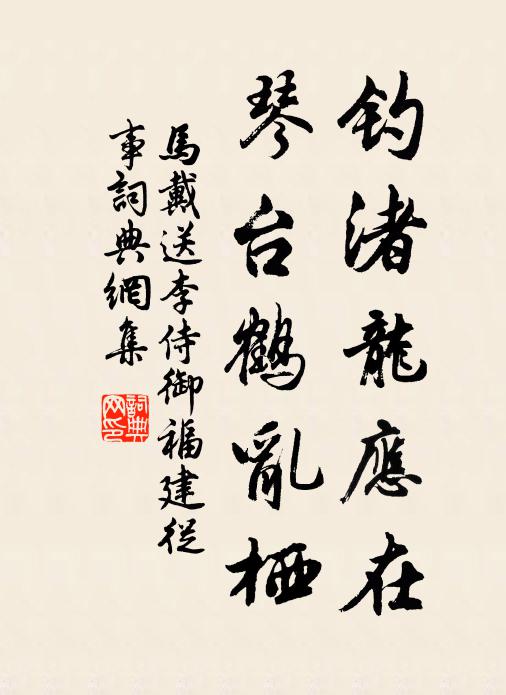 钓渚龍應在
琴台鶴亂栖
馬戴送李侍御福建從
事詞典網集
詞典
网印